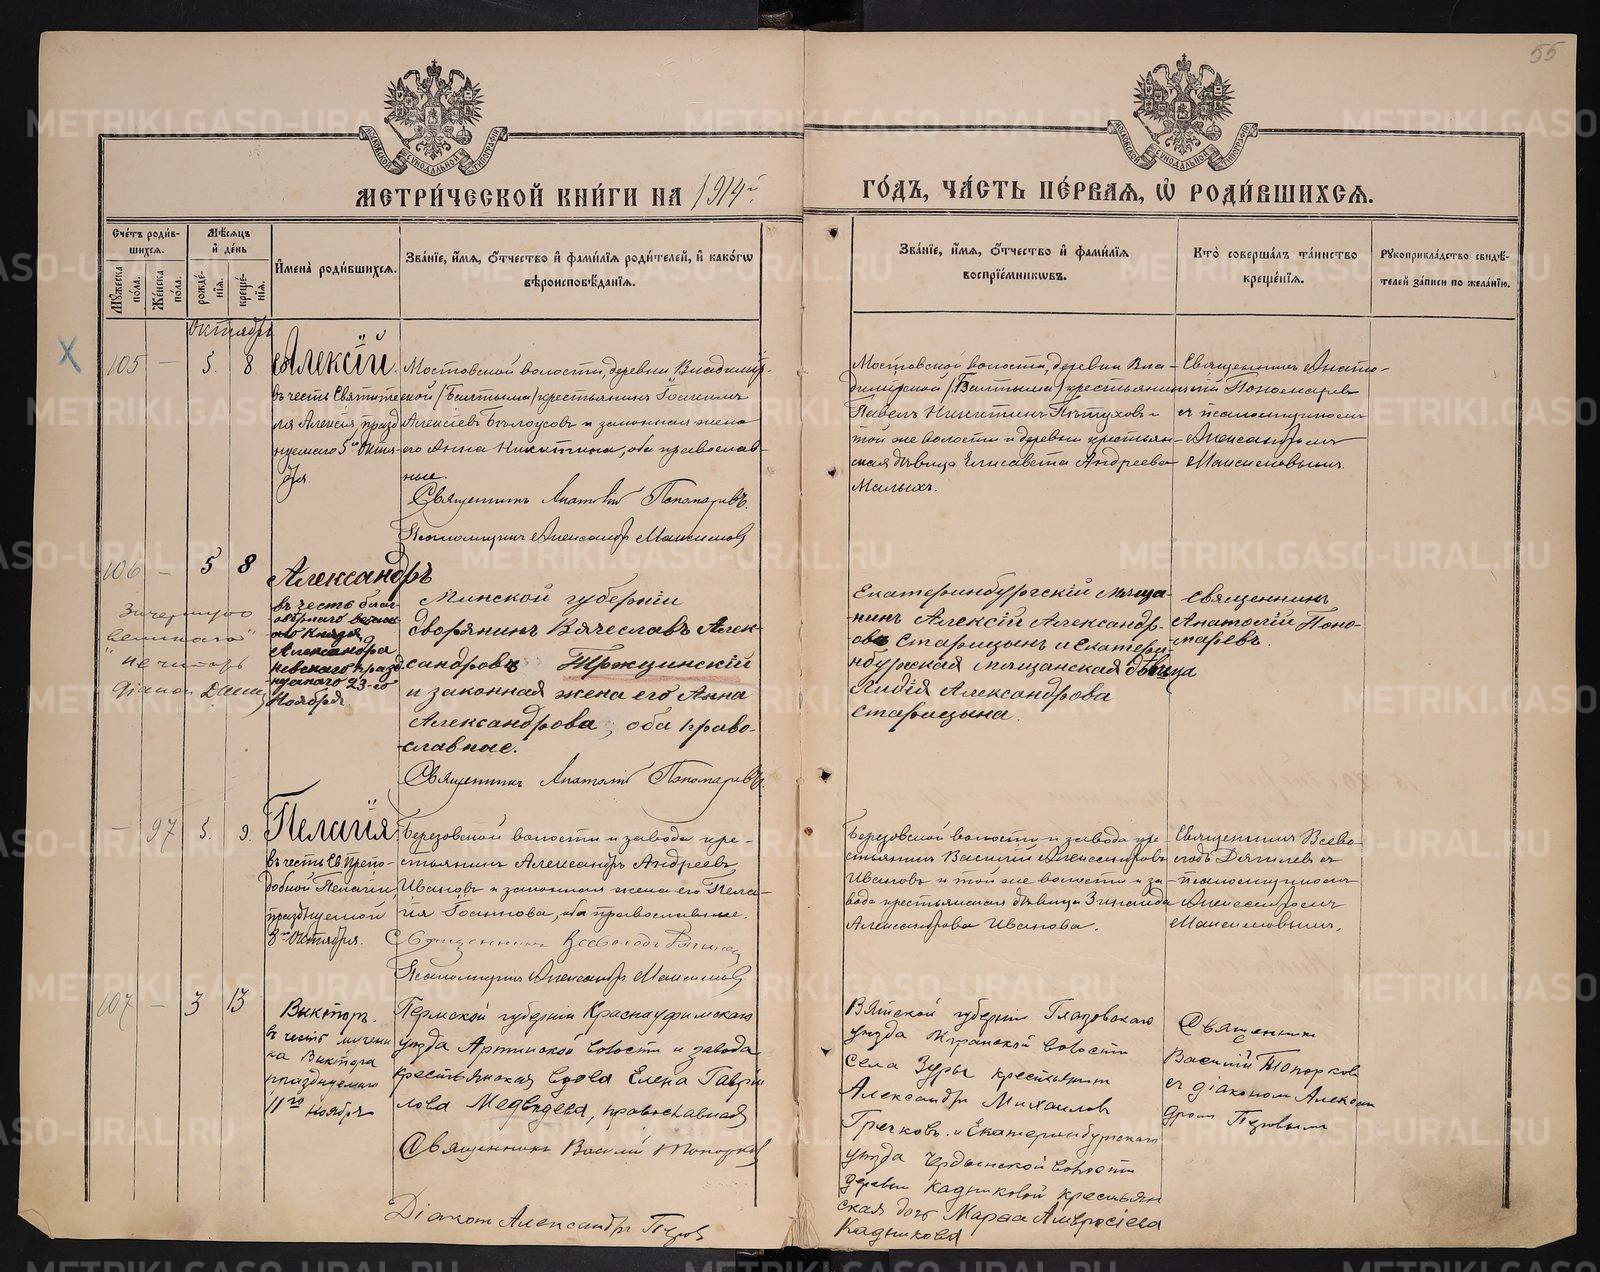 55
МОСКОВСКОЙ СѴНОДАЛЬНОЙ ТИПОГРАФІИ
МОСКОВСКОЙ СѴНОДАЛЬНОЙ ТИПОГРАФІИ
МЕТРИ́ЧЕСКОЙ КНИ́ГИ НА 1914й
ГО́ДЪ, ЧА́СТЬ ПЕ́РВАЯ, Ѽ РОДИ́ВШИХСЯ.
Сче́тъ роди́в-
шихся.
Мꙋ́жеска по́ла.
Же́нска по́ла.
Мѣ́сяцъ
и де́нь
рожде́-нїя.
креще́-нїя.
И҆мена̀ роди́вшихся.
Зва́нїе, и҆́мя, ѻ҆́тчество и҆ фами́лїя роди́телей, и҆ како́гѡ
вѣроисповѣ́данїя.
Зва́нїе, и҆́мя, ѻ҆́тчество и҆ фами́лїя
воспрїе́мникѡвъ.
Кто̀ соверша́лъ та́инство
креще́нїя.
Рꙋкоприкла́дство свидѣ́-
телей за́писи по жела́нїю.
Октябрь
105 — 5. 8 Алексій.
въ честь Святите-
ля Алексія, празд
нуемаго 5го Октя-
бря.
Мостовской волости, деревни Владимiр-
ской /Балтыма/ крестьянинъ Іоакимъ
Алексіевъ Бѣлоусовъ и законная жена
его Анна Никитина, оба православ-
ные.
Священникъ Анатолій Пономаревъ.
Псаломщикъ Александръ Максимов
Мостовской волости, деревни Вла-
димірской /Балтыма/ крестьянинъ
Павелъ Никитинъ Пѣтуховъ и
той же волости и деревни крестьян-
ская дѣвица Елисавета Андреева
Малыхъ.
Священникъ Анато-
лій Пономаревъ
съ псаломщикомъ
Александромъ
Максимовымъ.
106 — 5 8 Александръ
въ честь благ-
овѣрнаго велик-
аго Князя
Александра
Невскаго празд-
нуемаго 23-го
Ноября.
Зачеркнуто
"не читать
діакон
Минской губерніи
дворянинъ Вячеславъ Алек-
сандровъ Тржцинскій
и законная жена его Анна
Александрова, оба право-
славные.
Священникъ Анатолій Пономаревъ.
Екатеринбургскій мѣща-
нинъ Алексій Александр-
овъ Старицынъ и Екатери-
нбургская мѣщанская дѣвица
Лидія Александрова
Старицына.
Священникъ
Анатолій Поно-
маревъ.
— 97 5. 9. Пелагія.
въ честь Св. Препо-
добной Пелагіи,
празднуемой
8го Октября.
Березовской волости и завода кре-
стьянинъ Александръ Андреевъ
Ивановъ и законная жена его Пела-
гія Іоаннова, оба православные.
Священникъ Всеволодъ
Псаломщикъ Александръ Максимов
Березовской волости и завода кре-
стьянинъ Василій Александровъ
Ивановъ и той же волости и за-
вода крестьянская дѣвица Зинаида
Александрова Иванова.
Священникъ Всево-
лодъ съ
псаломщикомъ
Александромъ
Максимовымъ.
107 — 3 13 Викторъ.
въ честь мучени
ка Виктора
празднуемаго
11го ноября
Пермской губерніи Красноуфимскаго
уѣзда Артинской волости и завода
крестьянская вдова Елена Гаври
лова Медвѣдева, православная
Священникъ Василій Топорков
Діаконъ Александръ
Вятской губерніи Глазовскаго
уѣзда Игранской волости
села Зуры крестьянинъ
Александръ Михаиловъ
Гречковъ. и Екатеринбургскаго
уѣзда волости
деревни Кадниковой крестьян
ская дочь Марѳа Амвросіева
Кадникова
Священникъ
Василій Топорков
съ діакономъ Алексан
дромъ